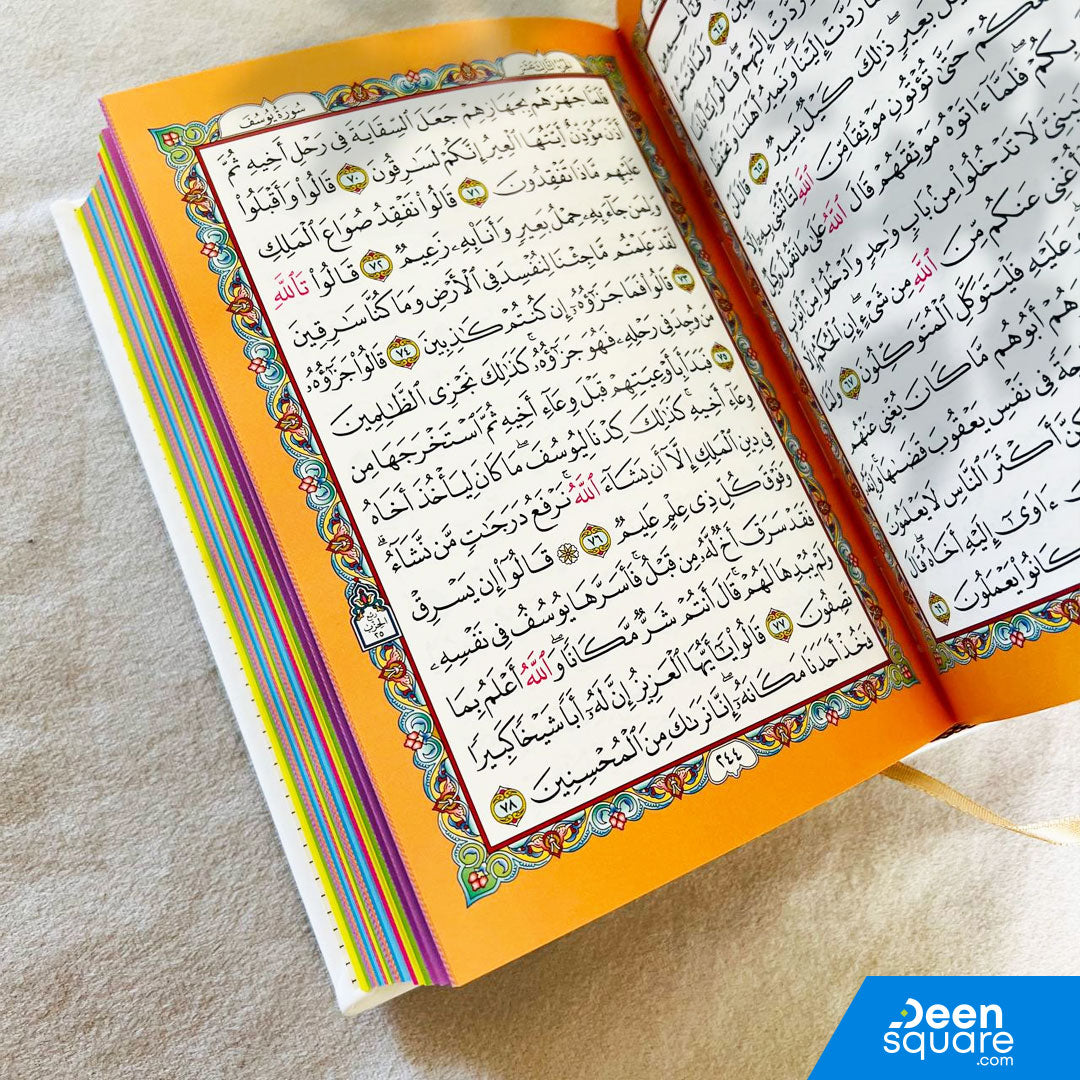 رُدَّتْ إِلَيْهِمْ ۖ قَالُوا۟
رُدَّتْ إِلَيْنَا ۖ وَنَمِيرُ أَهْلَنَا وَنَحْفَظُ
بَعِيرٍ ۖ ذَٰلِكَ كَيْلٌ يَسِيرٌ ٦٥ قَالَ لَنْ
حَتَّىٰ تُؤْتُونِ مَوْثِقًا مِّنَ ٱللَّهِ لَتَأْتُنَّنِى بِهِۦٓ إِلَّآ
بِكُمْ ۖ فَلَمَّآ ءَاتَوْهُ مَوْثِقَهُمْ قَالَ ٱللَّهُ عَلَىٰ مَا نَقُولُ وَكِيلٌ
لَا تَدْخُلُوا۟ مِنۢ بَابٍ وَٰحِدٍ وَٱدْخُلُوا۟ مِنْ أَبْوَٰبٍ
أُغْنِى عَنكُم مِّنَ ٱللَّهِ مِن شَىْءٍ ۖ إِنِ ٱلْحُكْمُ إِلَّا
وَعَلَيْهِ فَلْيَتَوَكَّلِ ٱلْمُتَوَكِّلُونَ ٦٧ وَلَمَّا
أَبُوهُم مَّا كَانَ يُغْنِى عَنْهُم
فِى نَفْسِ يَعْقُوبَ قَضَىٰهَا ۚ وَإِنَّهُۥ
أَكْثَرَ ٱلنَّاسِ لَا يَعْلَمُونَ
ءَاوَىٰٓ إِلَيْهِ أَخَاهُ ۖ قَالَ
كَانُوا۟ يَعْمَلُونَ ٦٩
سُورَةُ يُوسُفَ
فَلَمَّا جَهَّزَهُم بِجَهَازِهِمْ جَعَلَ ٱلسِّقَايَةَ فِى رَحْلِ أَخِيهِ ثُمَّ
أَذَّنَ مُؤَذِّنٌ أَيَّتُهَا ٱلْعِيرُ إِنَّكُمْ لَسَٰرِقُونَ ٧٠ قَالُوا۟ وَأَقْبَلُوا۟
عَلَيْهِم مَّاذَا تَفْقِدُونَ ٧١ قَالُوا۟ نَفْقِدُ صُوَاعَ ٱلْمَلِكِ
وَلِمَن جَآءَ بِهِۦ حِمْلُ بَعِيرٍ وَأَنَا۠ بِهِۦ زَعِيمٌ ٧٢ قَالُوا۟ تَٱللَّهِ
لَقَدْ عَلِمْتُم مَّا جِئْنَا لِنُفْسِدَ فِى ٱلْأَرْضِ وَمَا كُنَّا سَٰرِقِينَ
٧٣ قَالُوا۟ فَمَا جَزَٰٓؤُهُۥٓ إِن كُنتُمْ كَٰذِبِينَ ٧٤ قَالُوا۟ جَزَٰٓؤُهُۥ
مَن وُجِدَ فِى رَحْلِهِۦ فَهُوَ جَزَٰٓؤُهُۥ ۚ كَذَٰلِكَ نَجْزِى ٱلظَّٰلِمِينَ
٧٥ فَبَدَأَ بِأَوْعِيَتِهِمْ قَبْلَ وِعَآءِ أَخِيهِ ثُمَّ ٱسْتَخْرَجَهَا مِن
وِعَآءِ أَخِيهِ ۚ كَذَٰلِكَ كِدْنَا لِيُوسُفَ ۖ مَا كَانَ لِيَأْخُذَ أَخَاهُ
فِى دِينِ ٱلْمَلِكِ إِلَّآ أَن يَشَآءَ ٱللَّهُ ۚ نَرْفَعُ دَرَجَٰتٍ مَّن نَّشَآءُ ۗ
وَفَوْقَ كُلِّ ذِى عِلْمٍ عَلِيمٌ ٧٦ ۞ قَالُوٓا۟ إِن يَسْرِقْ
فَقَدْ سَرَقَ أَخٌ لَّهُۥ مِن قَبْلُ ۚ فَأَسَرَّهَا يُوسُفُ فِى نَفْسِهِۦ
وَلَمْ يُبْدِهَا لَهُمْ ۚ قَالَ أَنتُمْ شَرٌّ مَّكَانًا ۖ وَٱللَّهُ أَعْلَمُ بِمَا
تَصِفُونَ ٧٧ قَالُوا۟ يَٰٓأَيُّهَا ٱلْعَزِيزُ إِنَّ لَهُۥٓ أَبًا شَيْخًا كَبِيرًا
فَخُذْ أَحَدَنَا مَكَانَهُۥٓ ۖ إِنَّا نَرَىٰكَ مِنَ ٱلْمُحْسِنِينَ ٧٨
٢٤٤
Deen
square
.com